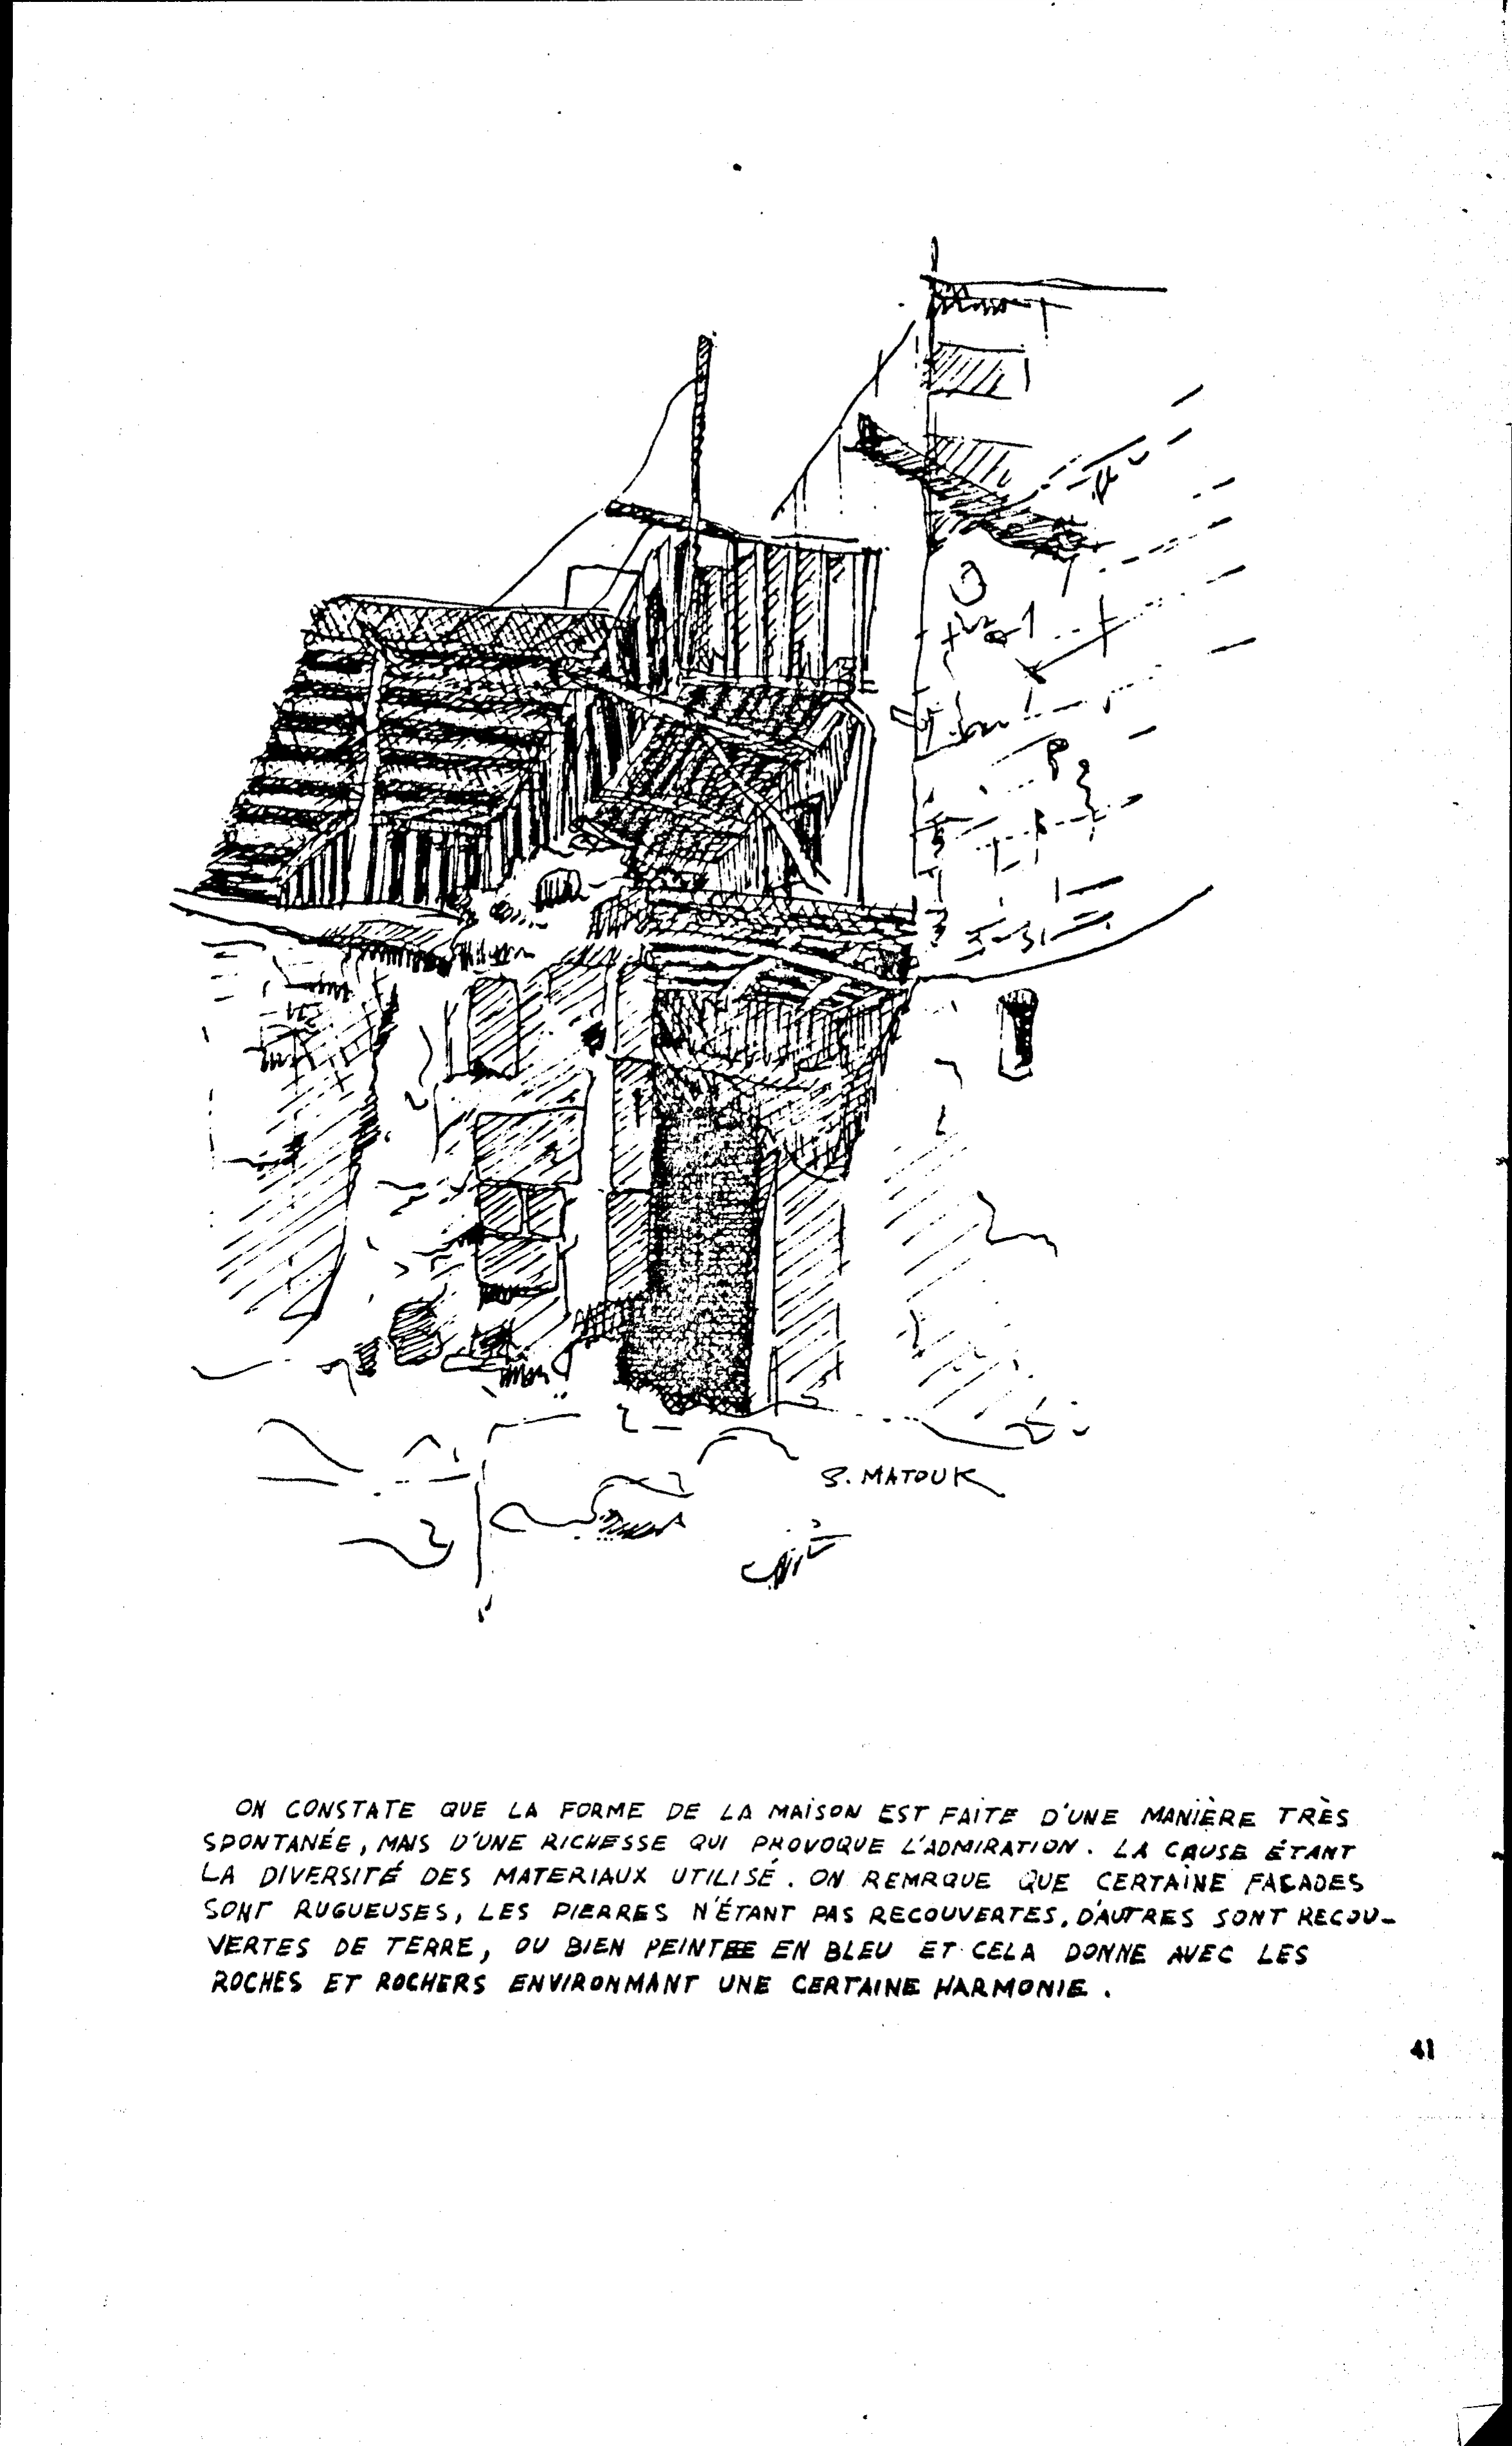 S. MATOUK
ON CONSTATE QUE LA FORME DE LA MAISON EST FAITE D'UNE MANIÈRE TRÈS
SPONTANÉE, MAIS D'UNE RICHESSE QUI PROVOQUE L'ADMIRATION. LA CAUSE ÉTANT
LA DIVERSITÉ DES MATERIAUX UTILISÉ. ON REMRQUE QUE CERTAINE FACADES
SONT RUGUEUSES, LES PIERRES N'ÉTANT PAS RECOUVERTES. D'AUTRES SONT RECOU-
VERTES DE TERRE, OU BIEN PEINTEE EN BLEU ET CELA DONNE AVEC LES
ROCHES ET ROCHERS ENVIRONMANT UNE CERTAINE HARMONIE.
41